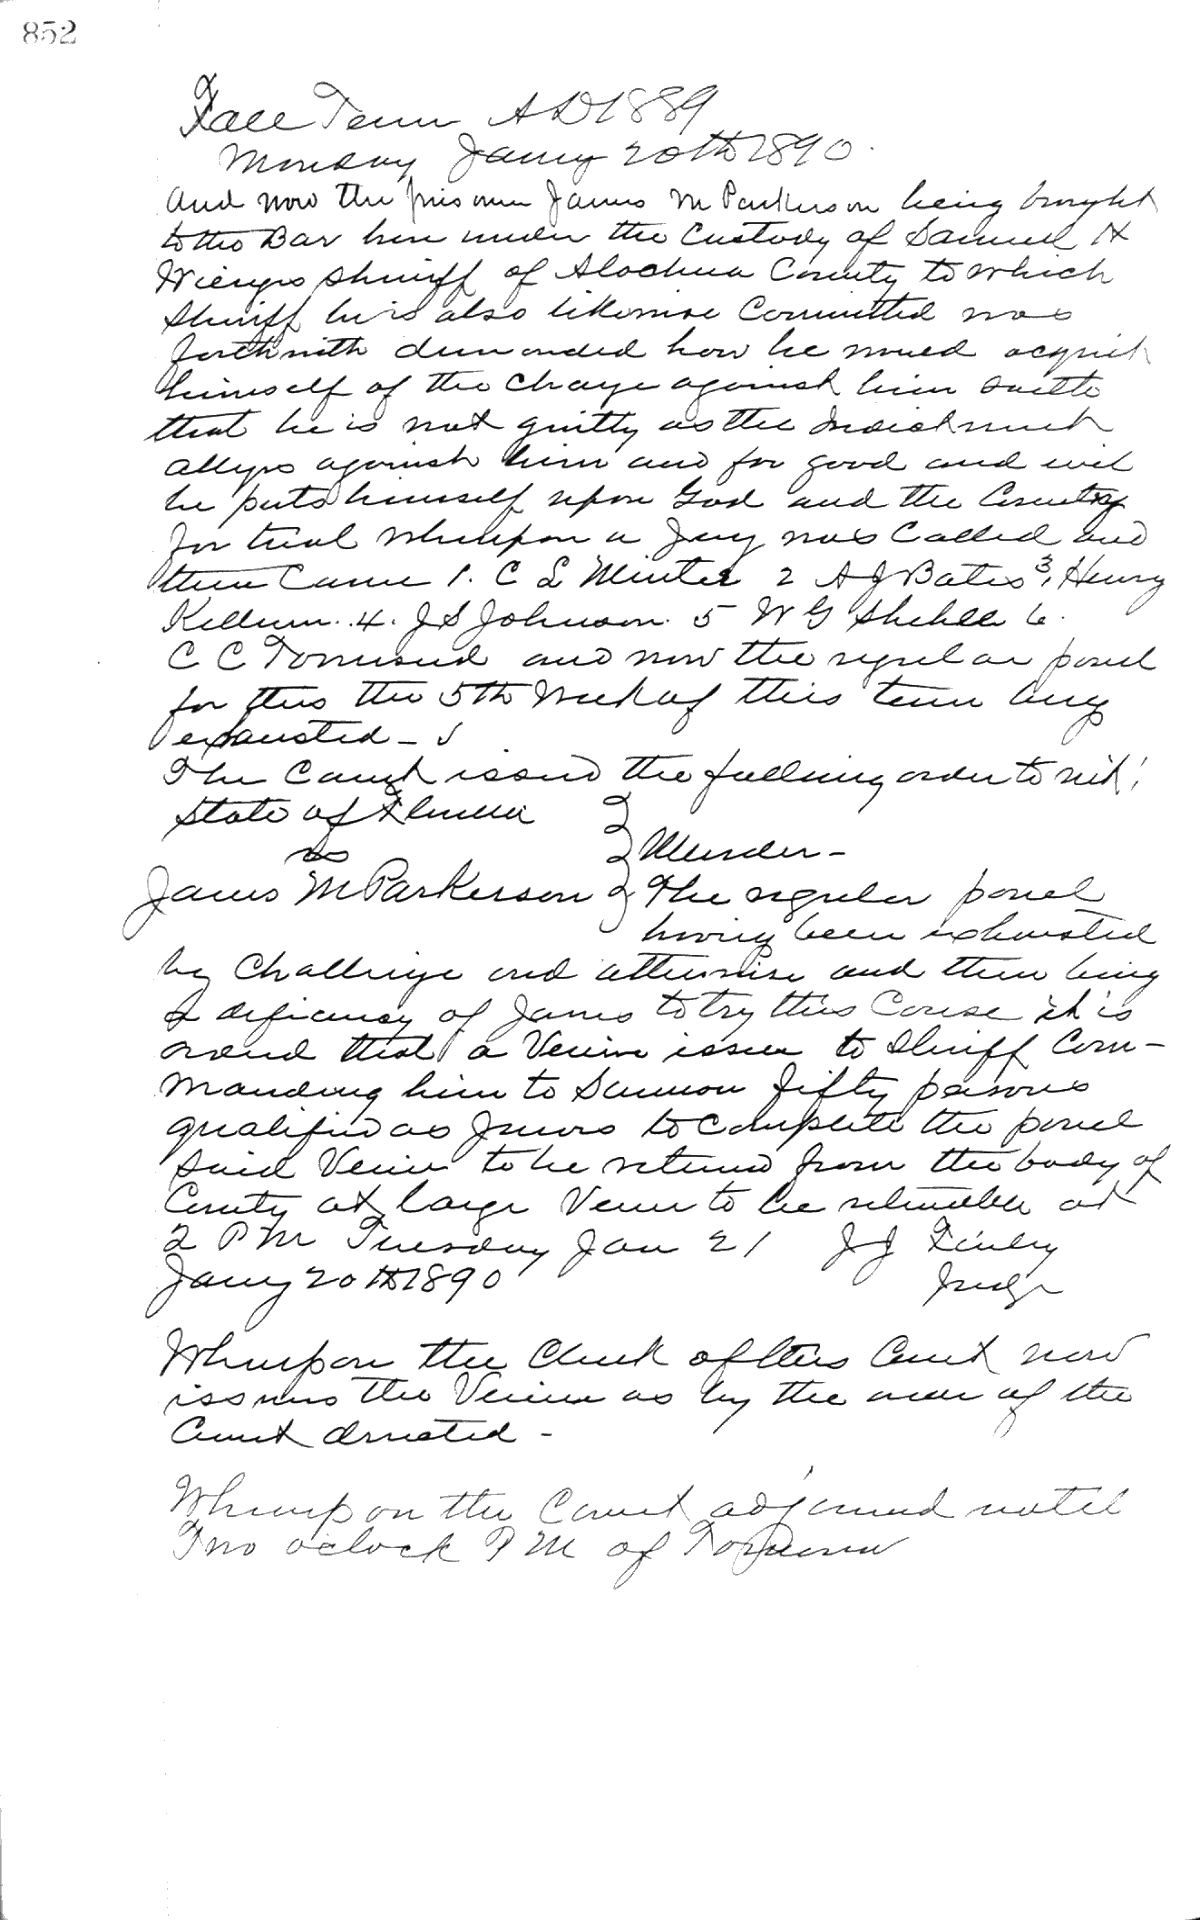 852
Fall Term A D 1889
Monday Jany 20th 1890.
And now the prisoner James M Parkerson being brought
to the Bar here under the Custody of Samuel H
Wienges Sheriff of Alachua County to which
Sheriff he is also likewise Committed was
forthwith demanded how he would acquit
himself of the charge against him saith
that he is not guilty as the Indictment
alleges against him and for good and evil
he puts himself upon God and the Country
for trial Whereupon a Jury was Called and
then Came 1. C L Winter 2 A J Bates 3, Henry
Kellum. 4. J S Johnson. 5 W G 6.
C C Townsend and now the regular panel
for this the 5th Week of this term being
exhausted -
The Court issued the following order to wit;
State of Florida
vs
Murder -
James M Parkerson The regular panel
having been exhausted
by Challenge and otherwise and there being
a deficiency of Jurors to try this Cause it is
ordered that a Venire issue to Sheriff Com-
manding him to Summon fifty persons
qualified as Jurors to complete the panel
said Venire to be returned from the body of
County at large Venire to be returnable at
2 P M Tuesday Jan 21 J J Finley
Jany 20th 1890 Judge
Whereupon the Clerk of this Court now
issues the Venire as by the order of the
Court directed -
Whereupon the Court adjourned until
Two oclock P M of Tomorrow